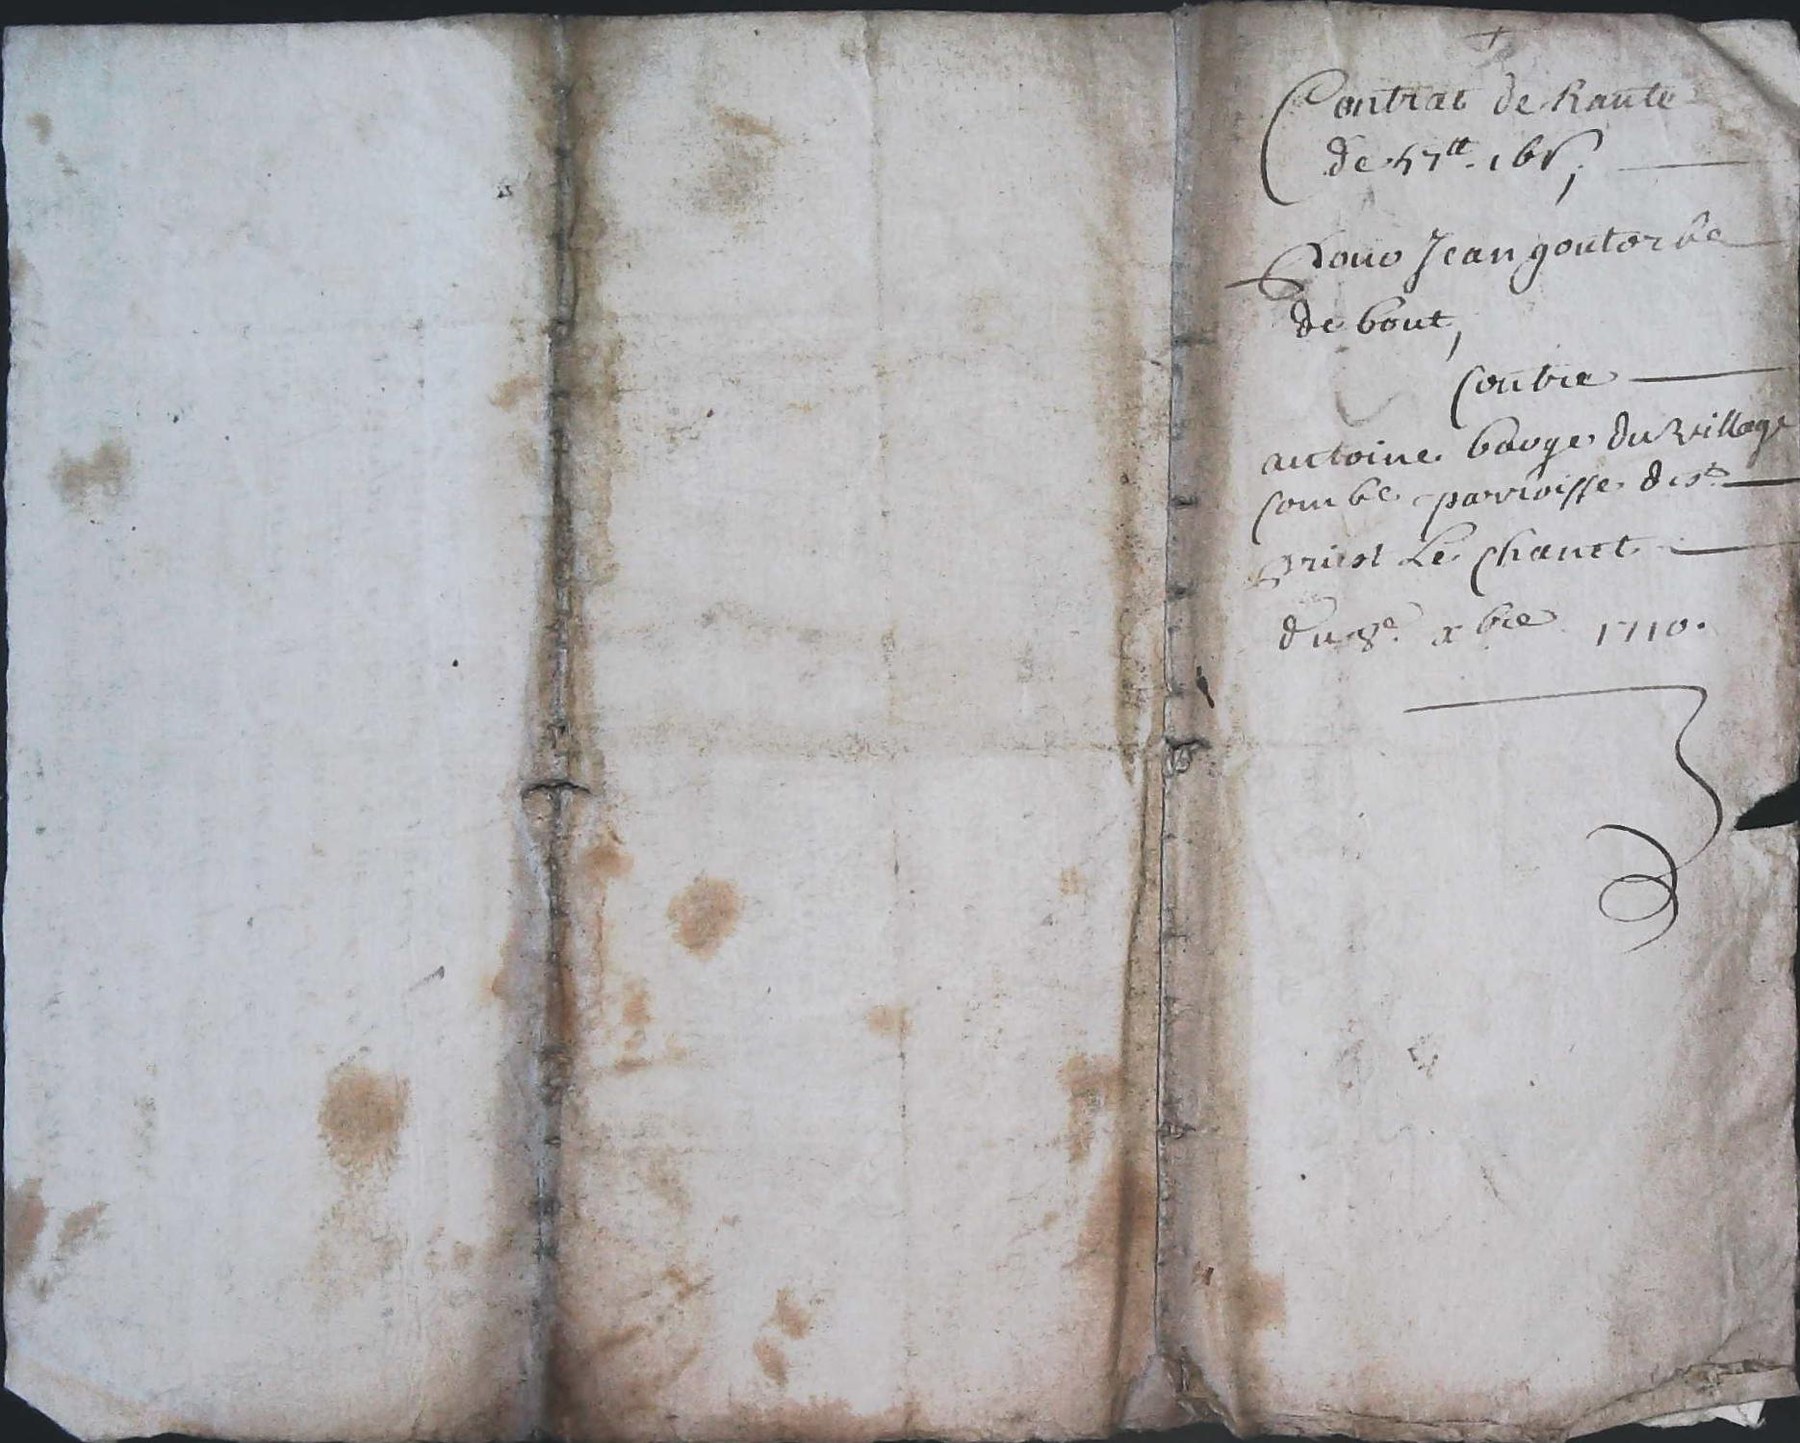 Contrat de Rante
de 57tt. 16s,
pour Jean goutorbe
de bout,
Contre
antoine bouge du village
Combe parroisse de st
priest Le Chanet
du 8e. xbre 1710.